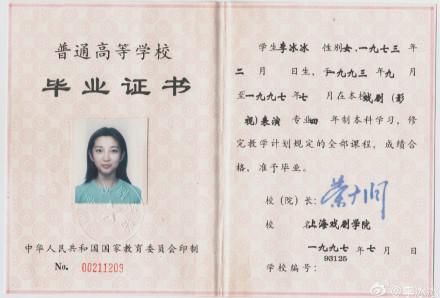 普通高等学校
毕业证书
中华人民共和国国家教育委员会印制
No. 00211209
学生李冰冰 性别女,一九七三年
二月 日生,于一九九三年九月
至一九九七年七月在本校戏剧(影
视)表演 专业四年制本科学习,修
完教学计划规定的全部课程,成绩合
格,准予毕业。
校(院)长:荣广润
校 名:上海戏剧学院
一九九七年七月 日
93125
学校编号: